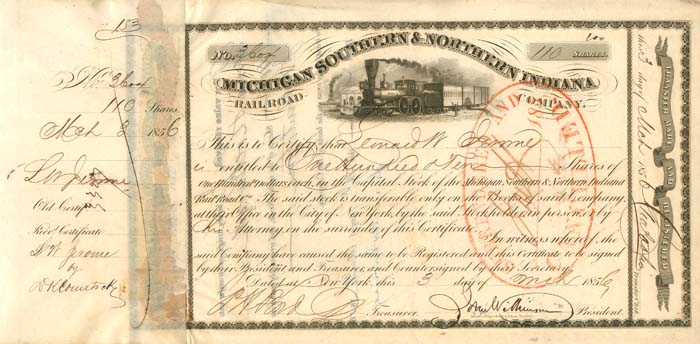 153
No. 3
110
Shares
Mch 3 1856
L W Jerome
Old Certif
Rec'd Certificate
L W Jerome
by
No.
110 SHARES.
100
MICHIGAN SOUTHERN & NORTHERN INDIANA
RAILROAD COMPANY.
This is to Certify that Leonard W Jerome
is entitled to One Hundred & Ten Shares of
One Hundred Dollars each, in the Capital Stock of the Michigan Southern & Northern Indiana
Rail Road Co. The said stock is transferable only on the Books of said Company
at their Office in the City of New York, by the said Stockholder, in person, or by
his Attorney, on the surrender of this Certificate. In witness whereof, the
said Company have caused the same to be Registered and this Certificate to be signed
by their President and Treasurer, and Countersigned by their Secretary.
Dated at New York this 3 day of Mch 1856
Treasurer. John Wilkinson President.
TRANSFER MADE AND REGISTERED
this 3 day of Mch 1856
AND